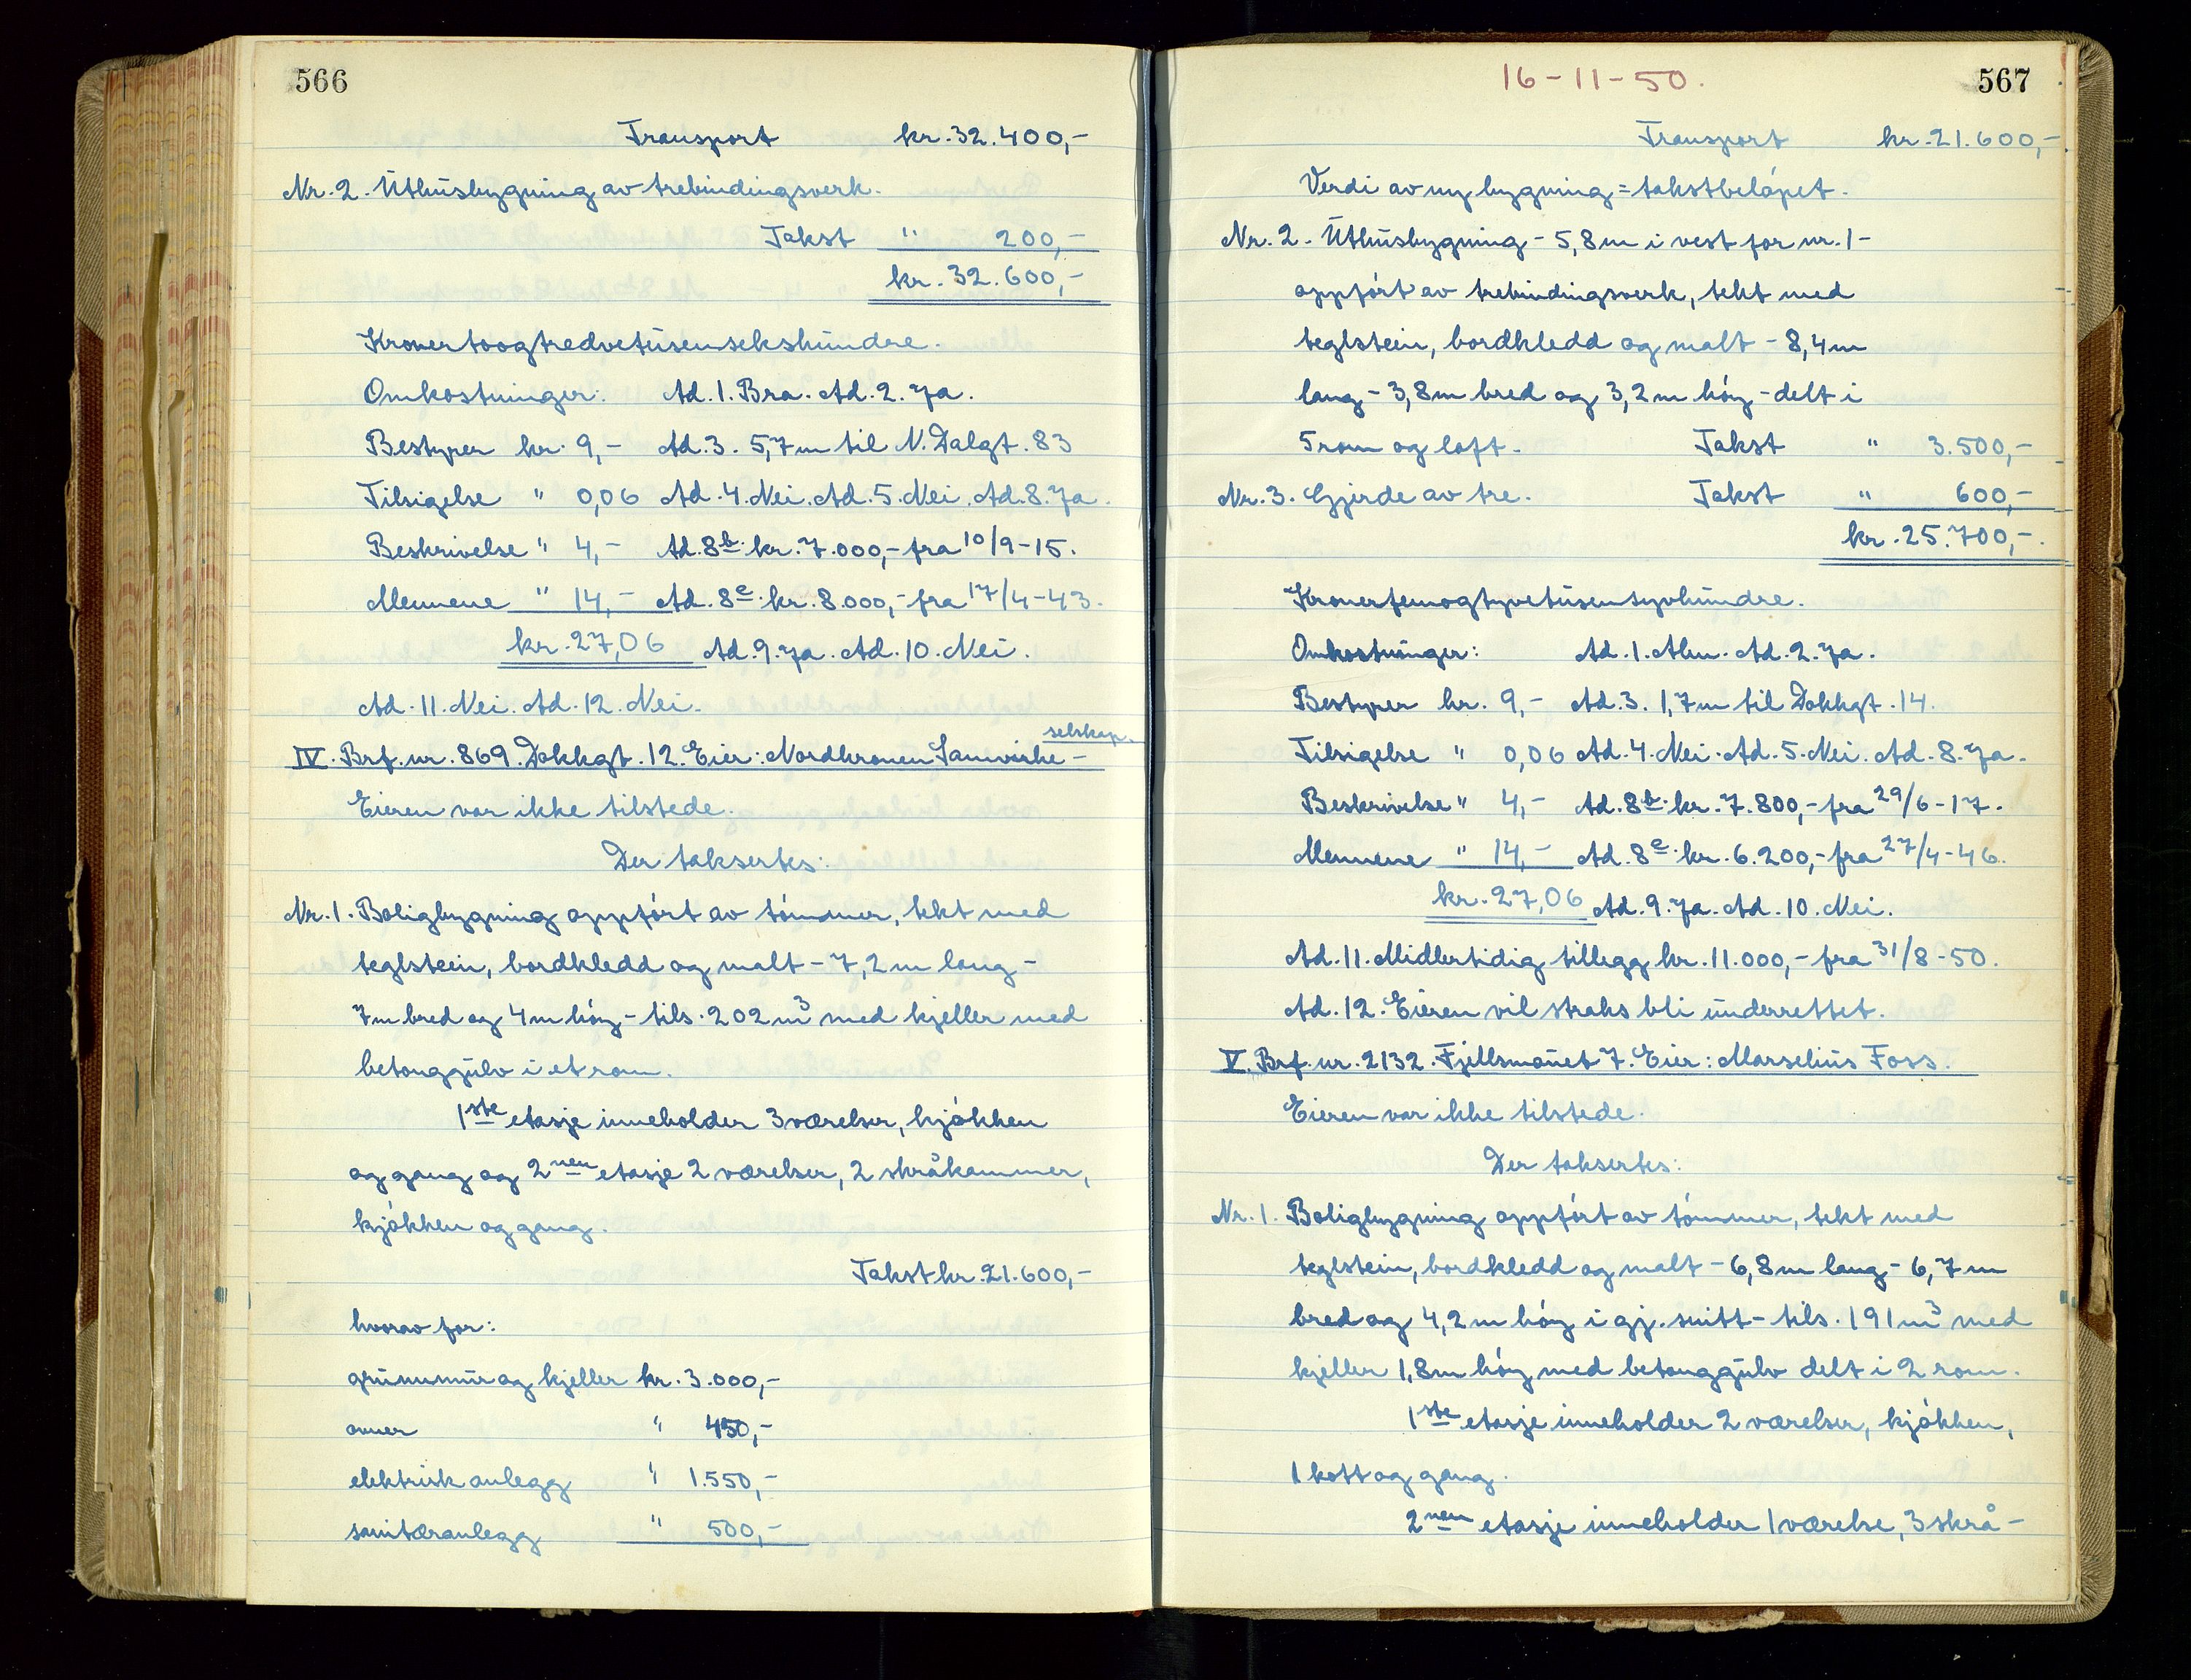 566
Transport kr. 32.400,-
Nr. 2. Uthusbygning av trebindingsverk.
Takst " 200,-
kr. 32.600,-
Kronertoogtredvetusensekshundre.
Omkostninger: Ad. 1. Bra. Ad. 2. Ja.
Bestyrer kr. 9,- Ad. 3. 5,7 m til N. Dalgt. 83
Tilsigelse " 0,06 Ad. 4. Nei. Ad. 5. Nei. Ad. 8. Ja.
Beskrivelse " 4,- Ad. 8b. kr. 7.000,- fra 10/9-15.
Mennene " 14,- Ad. 8c. kr. 8.000,- fra 17/4-43.
kr. 27,06 Ad. 9. Ja. Ad. 10. Nei.
Ad. 11. Nei. Ad. 12. Nei.
selskap.
IV. Brf. nr. 869. Dokkgt. 12. Eier: Nordkronen Samvirke-
Eieren var ikke tilstede.
Der taksertes:
Nr. 1. Boligbygning oppført av tømmer, tekt med
teglstein, bordkledd og malt - 7,2 m lang -
7 m bred og 4 m høy - tils. 202 m³ med kjeller med
betonggulv i et rom.
1ste etasje inneholder 3 værelser, kjøkken
og gang og 2nen etasje 2 værelser, 2 skråkammer,
kjøkken og gang.
Takst kr. 21.600,-
hvorav for:
grunnmur og kjeller kr. 3.000,-
ovner " 450,-
elektrisk anlegg " 1.550,-
sanitæranlegg " 500,-
16-11-50.
567
Transport kr. 21.600,-
Verdi av ny bygning = takstbeløpet.
Nr. 2. Uthusbygning - 5,8 m i vest for nr. 1 -
oppført av trebindingsverk, tekt med
teglstein, bordkledd og malt - 8,4 m
lang - 3,8 m bred og 3,2 m høy - delt i
5 rom og loft. Takst " 3.500,-
Nr. 3. Gjerde av tre. Takst " 600,-
kr. 25.700,-.
Kronerfemogtyvetusensyvhundre.
Omkostninger: Ad. 1. Alm. Ad. 2. Ja.
Bestyrer kr. 9,- Ad. 3. 1,7 m til Dokkgt. 14.
Tilsigelse " 0,06 Ad. 4. Nei. Ad. 5. Nei. Ad. 8. Ja.
Beskrivelse " 4,- Ad. 8b. kr. 7.800,- fra 29/6-17.
Mennene " 14,- Ad. 8c. kr. 6.200,- fra 27/4-46.
kr. 27,06 Ad. 9. Ja. Ad. 10. Nei.
Ad. 11. Midlertidig tillegg kr. 11.000,- fra 31/8-50.
Ad. 12. Eieren vil straks bli underrettet.
V. Brf. nr. 2132. Fjellsmauet 7. Eier: Marselius Foss.
Eieren var ikke tilstede.
Der taksertes:
Nr. 1. Boligbygning oppført av tømmer, tekt med
teglstein, bordkledd og malt - 6,8 m lang - 6,7 m
bred og 4,2 m høy i gj. snitt - tils. 191 m³ med
kjeller 1,8 m høy med betonggulv delt i 2 rom.
1ste etasje inneholder 2 værelser, kjøkken,
1 kott og gang.
2nen etasje inneholder 1 værelse, 3 skrå-